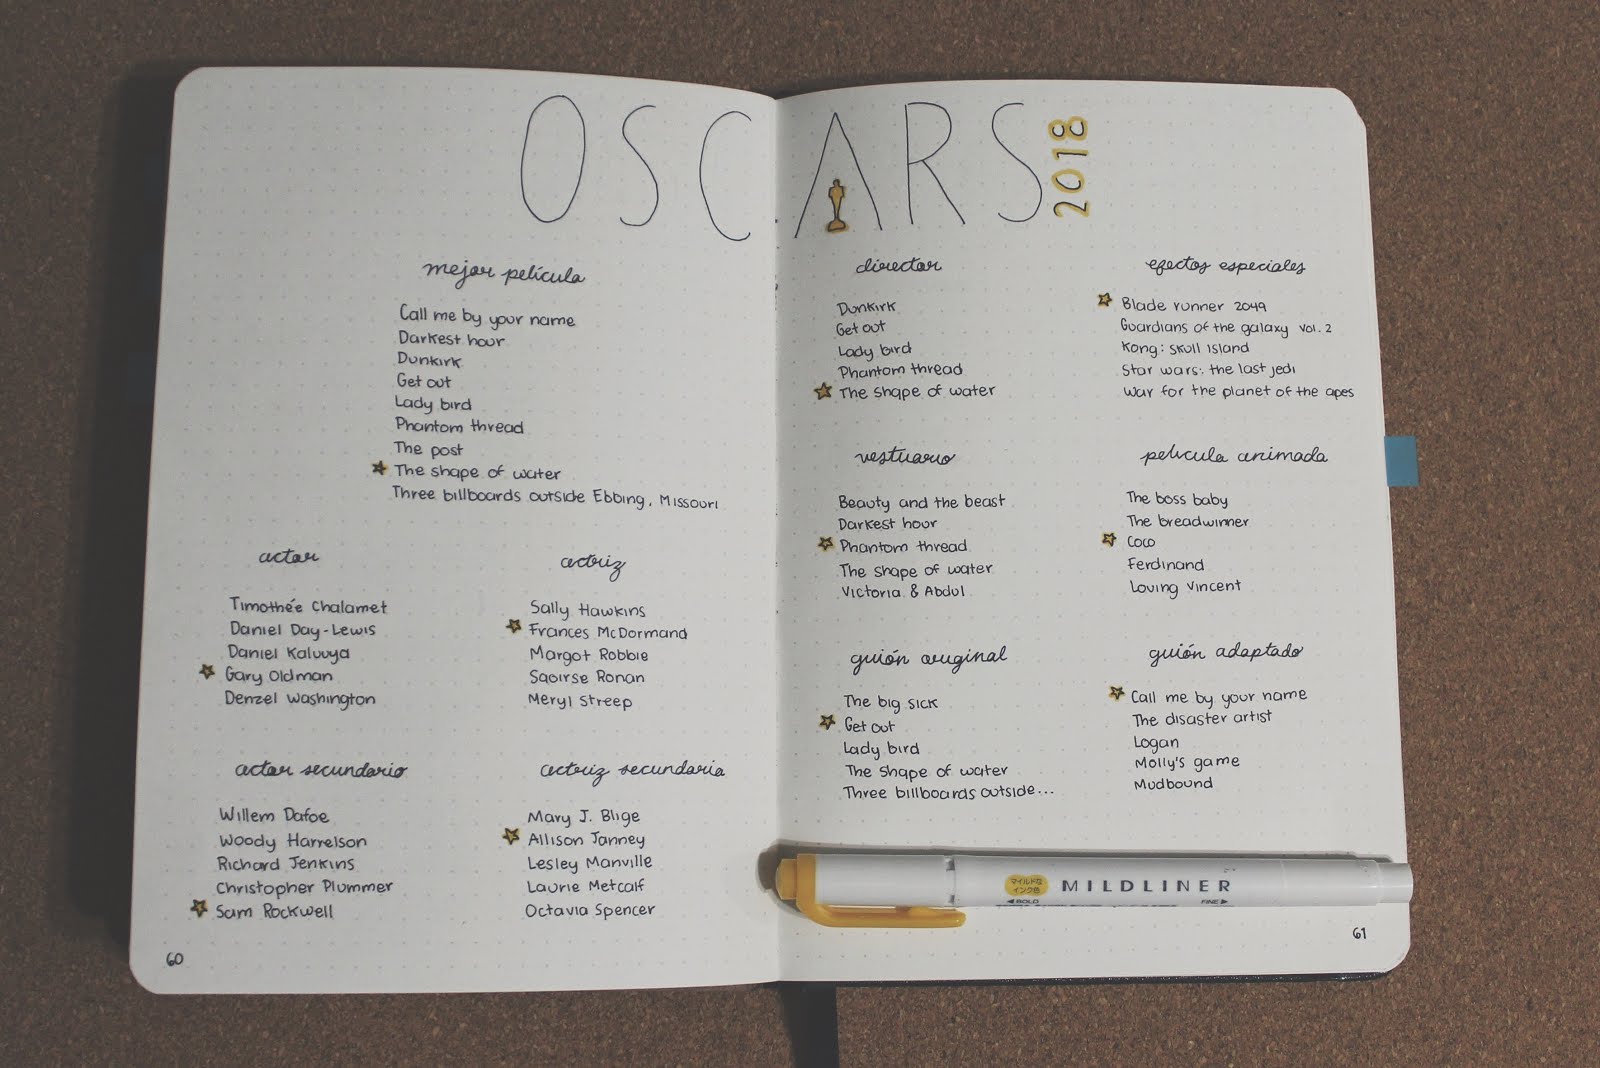 OSCARS 2018
mejor película
Call me by your name
Darkest hour
Dunkirk
Get out
Lady bird
Phantom thread
The post
The shape of water
Three billboards outside Ebbing, Missouri
actor
Timothée Chalamet
Daniel Day-Lewis
Daniel Kaluuya
Gary Oldman
Denzel Washington
actriz
Sally Hawkins
Frances McDormand
Margot Robbie
Saoirse Ronan
Meryl Streep
actor secundario
Willem Dafoe
Woody Harrelson
Richard Jenkins
Christopher Plummer
Sam Rockwell
actriz secundaria
Mary J. Blige
Allison Janney
Lesley Manville
Laurie Metcalf
Octavia Spencer
60
director
Dunkirk
Get out
Lady bird
Phantom thread
The shape of water
efectos especiales
Blade runner 2049
Guardians of the galaxy vol. 2
Kong: Skull Island
Star wars: the last jedi
War for the planet of the apes
vestuario
Beauty and the beast
Darkest hour
Phantom thread
The shape of water
Victoria & Abdul
película animada
The boss baby
The breadwinner
Coco
Ferdinand
Loving Vincent
guión original
The big sick
Get out
Lady bird
The shape of water
Three billboards outside...
guión adaptado
Call me by your name
The disaster artist
Logan
Molly's game
Mudbound
マイルドな
インク色
MILDLINER
◀BOLD
FINE▶
61